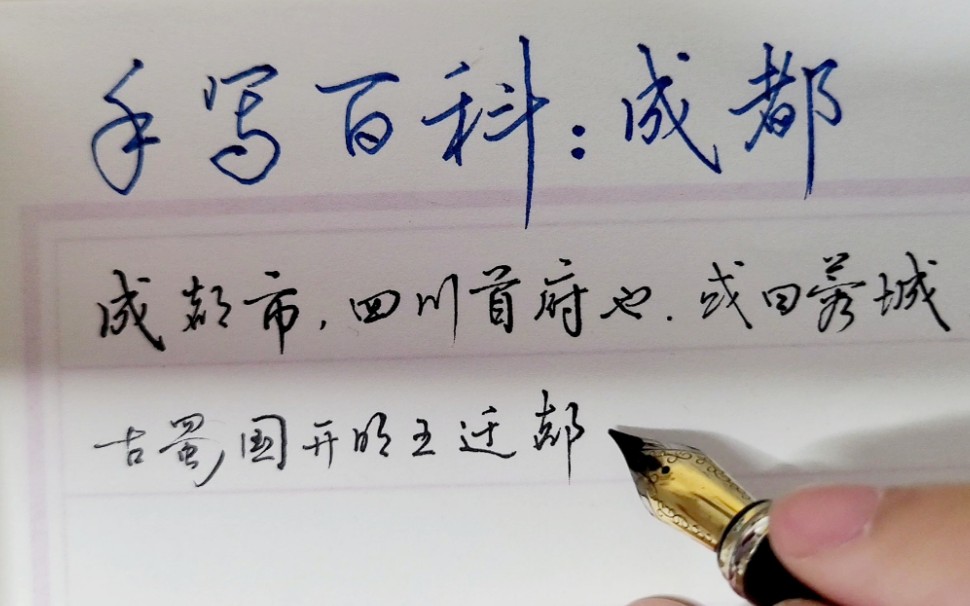 手写百科：成都
成都市，四川首府也．或曰蓉城
古蜀国开明王迁都